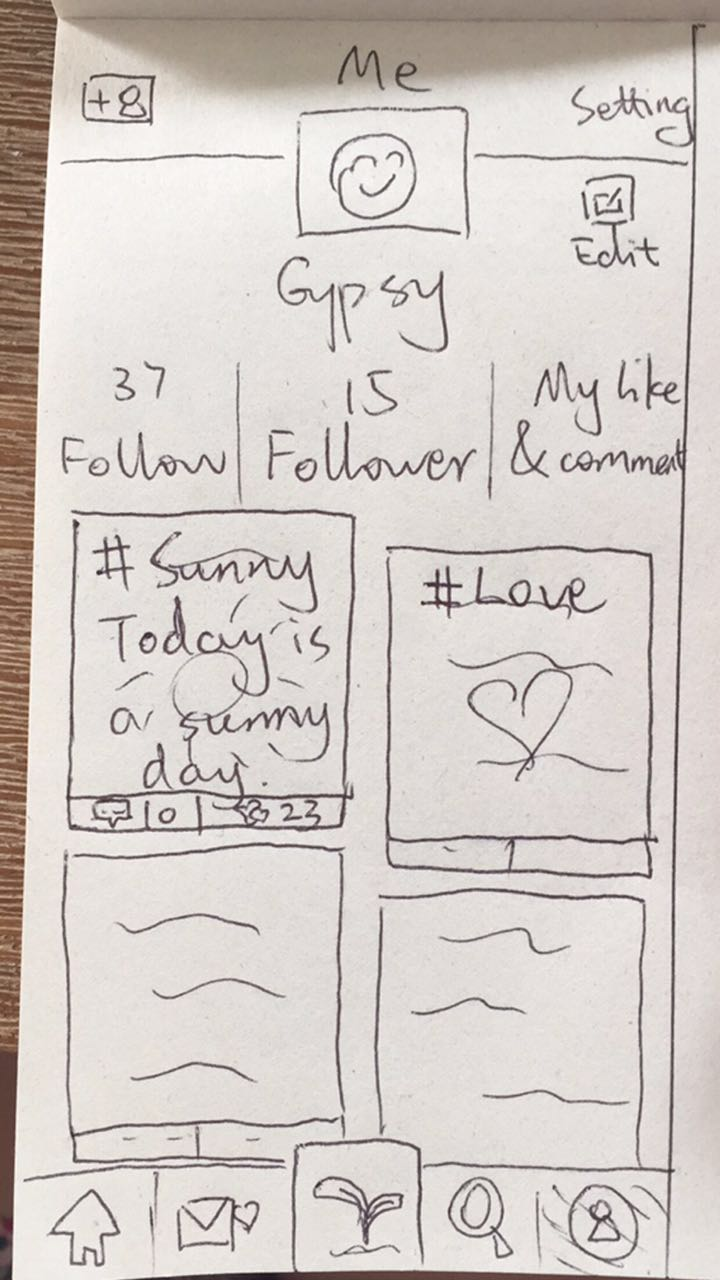 Me
+
Setting
Edit
Gypsy
37
Follow
15
Follower
My like
& comment
#Sunny
Today is
a sunny
day.
0
23
#Love